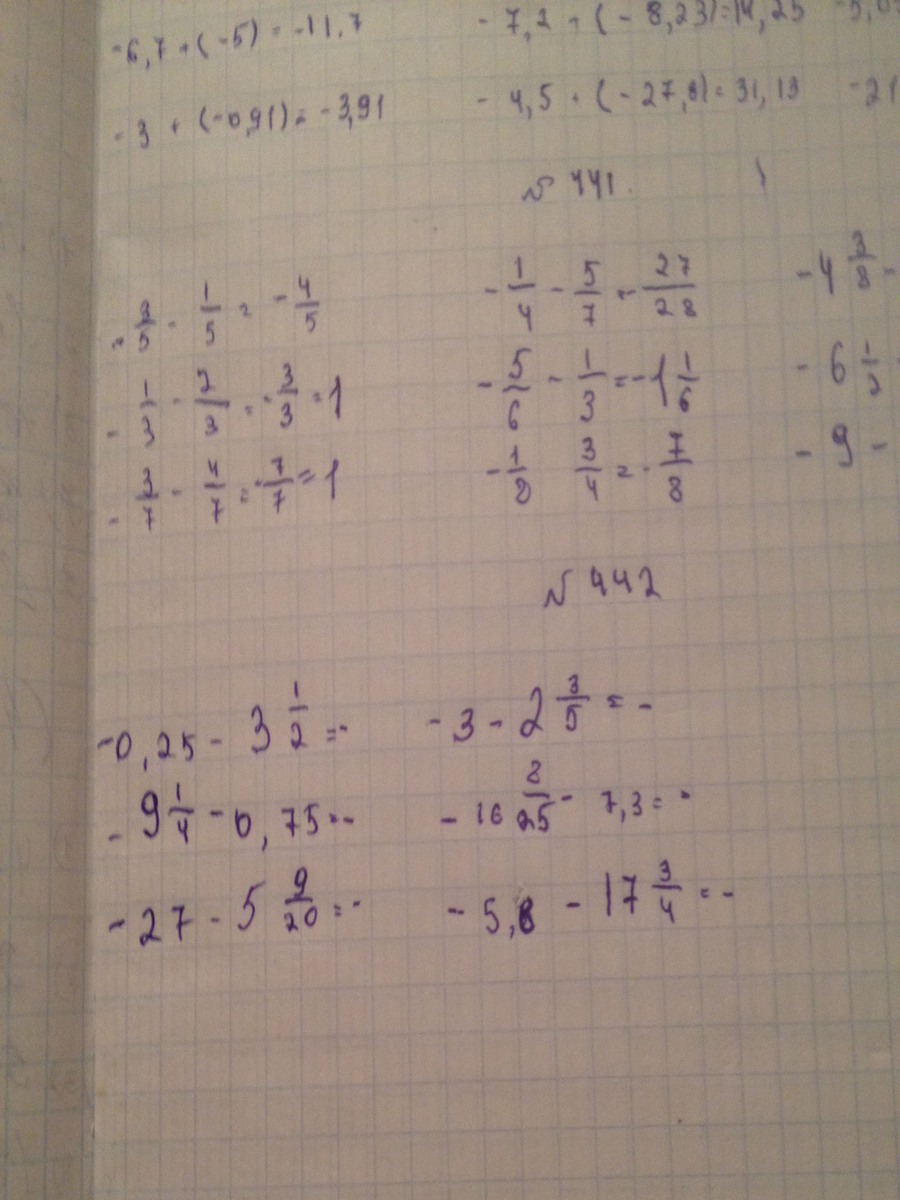 -6,7+(-5)=-11,7 -7,2+(-8,23)=14,25
-3+(-0,91)=-3,91 -4,5+(-27,8)=31,13 -21
№ 441.
-3/5-1/5=-4/5 -1/4-5/7=-27/28 -4 3/8-
-1/3-2/3=-3/3=1 -5/6-1/3=-1 1/6 -6 1/2
-3/7-4/7=-7/7=1 -1/8 3/4=-7/8 -9-
№ 442
-0,25-3 1/2=- -3-2 3/5=-
-9 1/4-0,75=- -16 8/25-7,3=-
-27-5 9/20=- -5,8-17 3/4=-